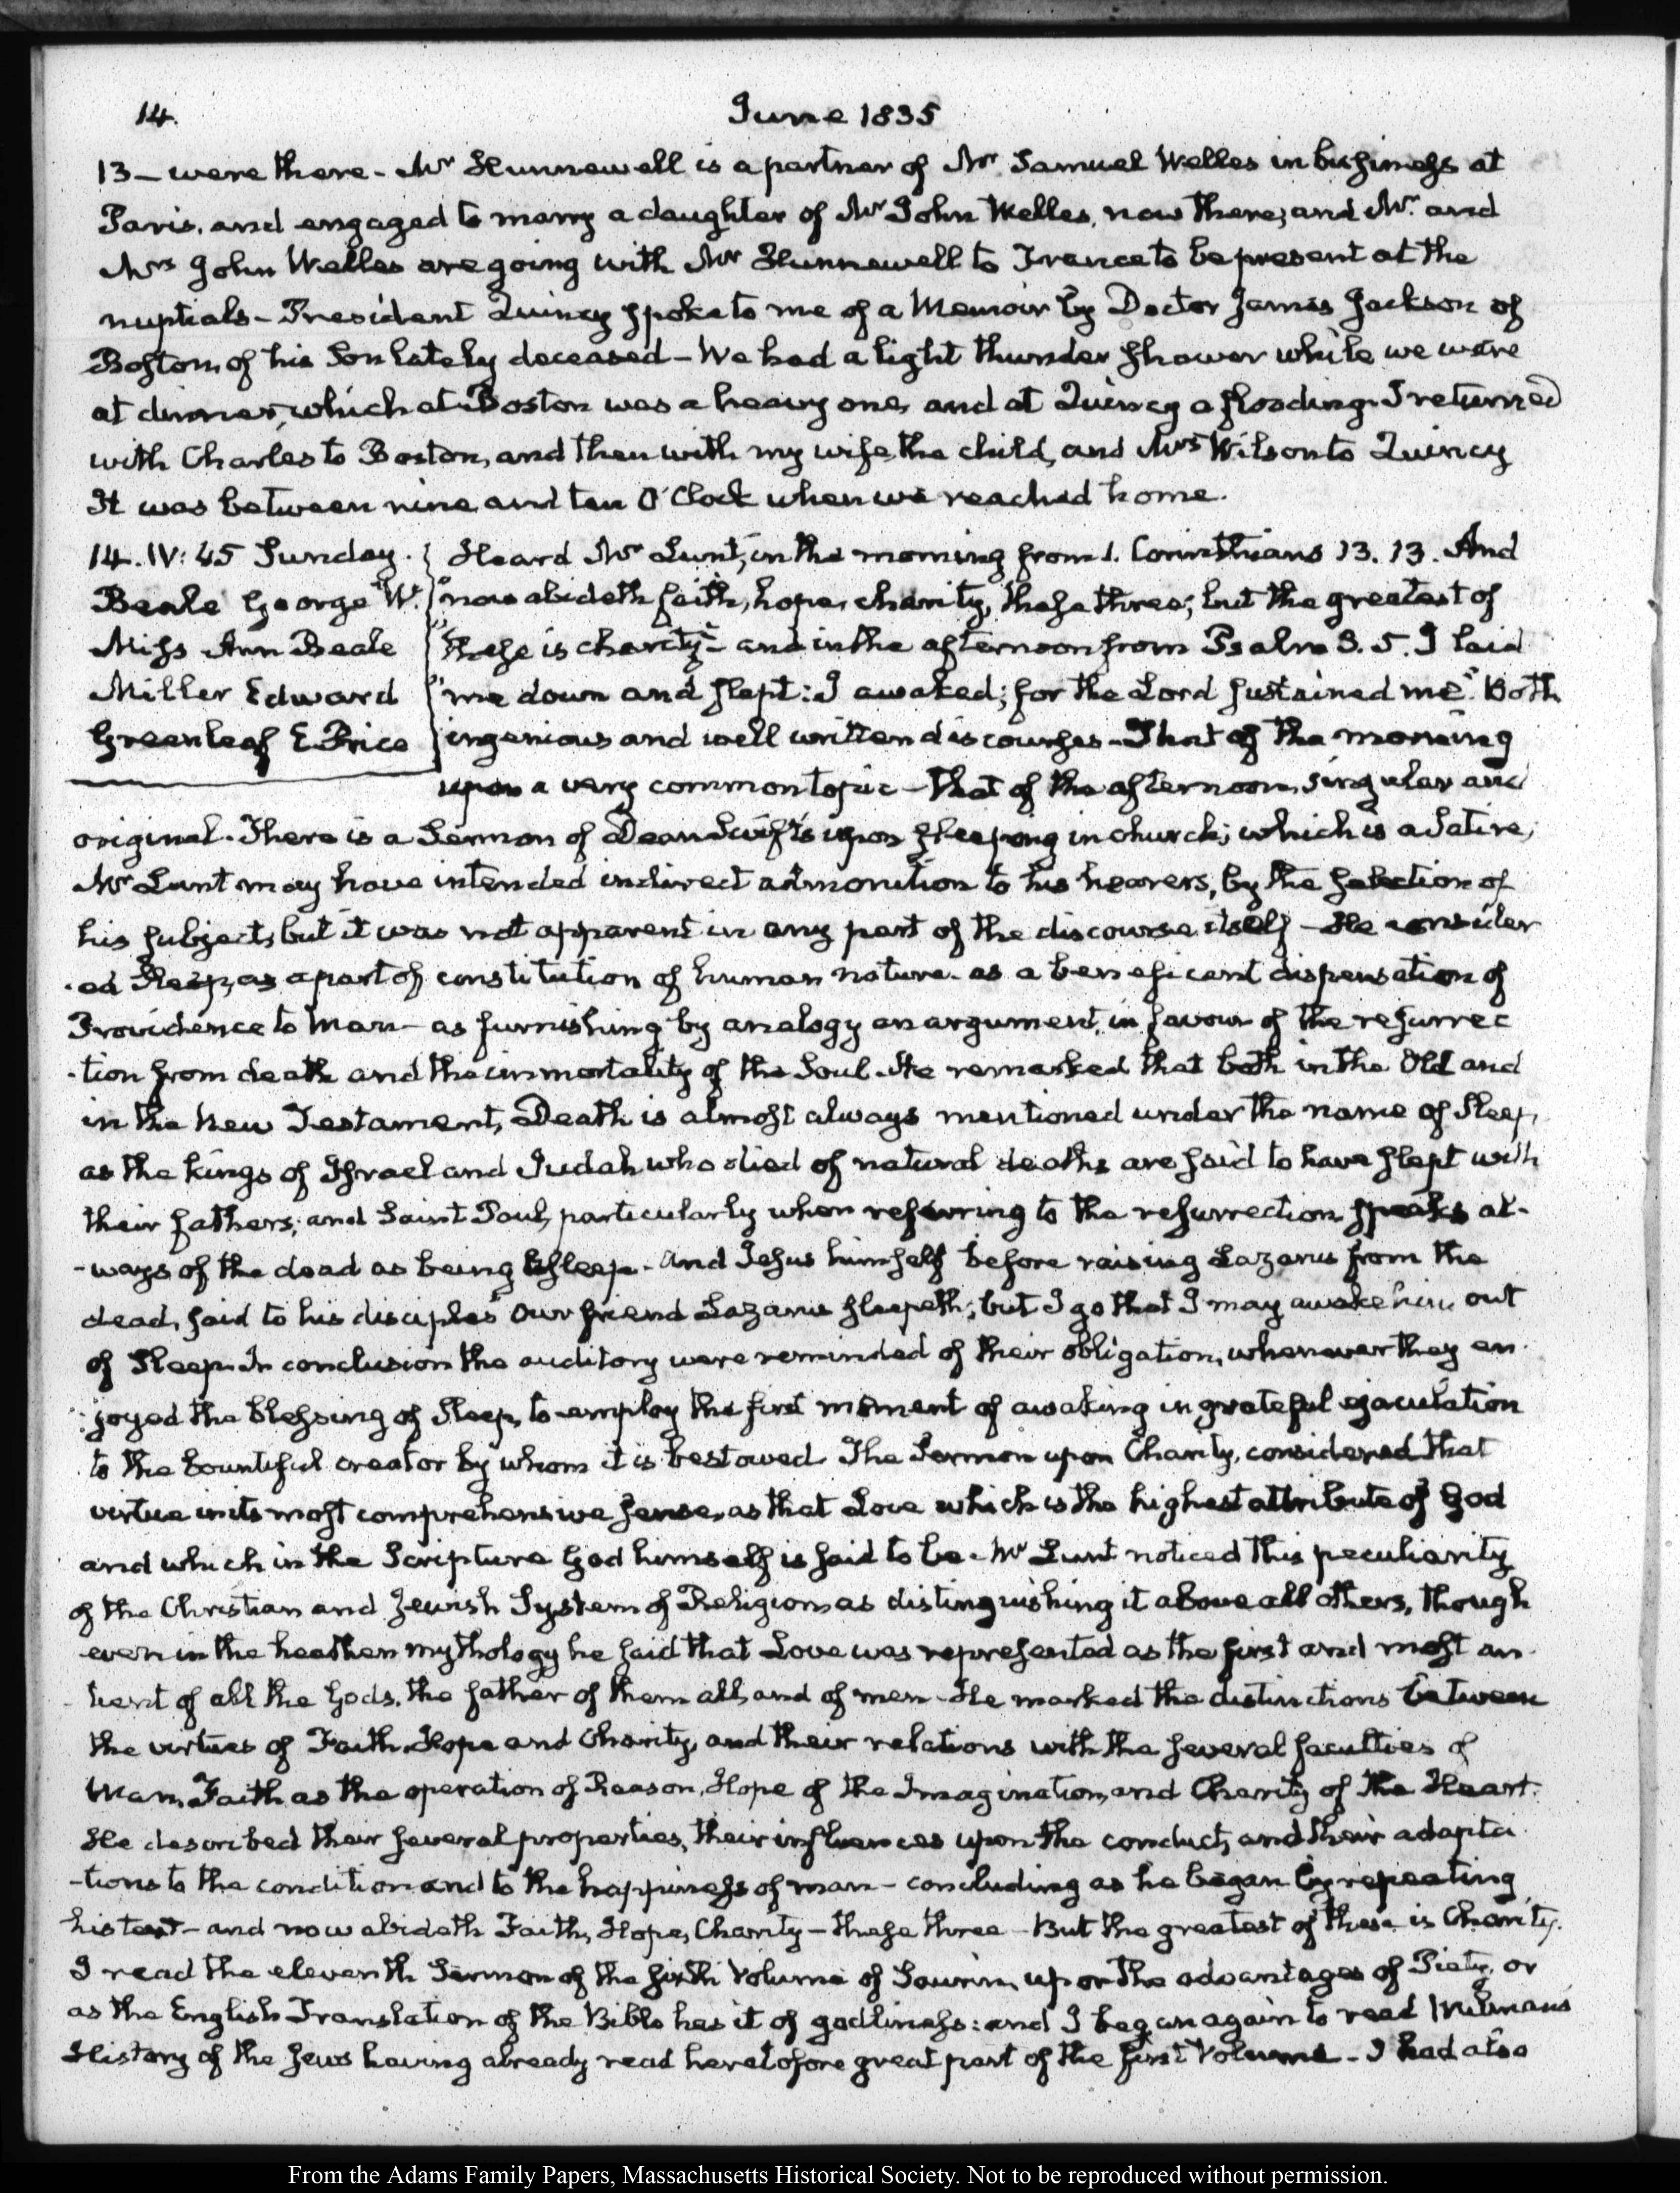 14.
June 1835
13 – were there – Mr Hunnewell is a partner of Mr Samuel Welles in business at
Paris, and engaged to marry a daughter of Mr John Welles, now there, and Mr. and
Mrs John Welles are going with Mr Hunnewell to France to be present at the
nuptials – President Quincy spoke to me of a Memoir by Doctor James Jackson of
Boston, of his Son lately deceased – We had a light thunder shower while we were
at dinner, which at Boston was a heavy one, and at Quincy a flooding. I returned
with Charles to Boston, and then with my wife, the child, and Mrs Wilson to Quincy
It was between nine and ten O'Clock when we reached home.
14. IV: 45 Sunday.
Beale George W.
Miss Ann Beale
Miller Edward
Greenleaf E Price
Heard Mr Lunt, in the morning from 1. Corinthians 13. 13. And
"now abideth faith, hope, charity, these three; but the greatest of
"these is charity" – and in the afternoon from Psalm 3. 5. I laid
"me down and slept: I awaked; for the Lord sustained me." Both
ingenious and well written discourses – That of the morning
upon a very common topic – that of the afternoon, singular and
original. There is a Sermon of Dean Swift's upon sleeping in church; which is a Satire;
Mr Lunt may have intended indirect admonition to his hearers, by the selection of
his subject, but it was not apparent in any part of the discourse itself – He consider
-ed Sleep, as a part of constitution of human nature – as a beneficent dispensation of
Providence to Man – as furnishing by analogy an argument, in favour of the resurrec
-tion from death and the immortality of the Soul. He remarked that both in the Old and
in the New Testament, Death is almost always mentioned under the name of Sleep,
as the kings of Israel and Judah who died of natural deaths are said to have slept with
their fathers; and Saint Paul, particularly when referring to the resurrection speaks al-
-ways of the dead as being asleep – And Jesus himself before raising Lazarus from the
dead, said to his disciples "Our friend Lazarus sleepeth; but I go that I may awake him out
of Sleep. In conclusion the auditory were reminded of their obligation, whenever they en
-joyed the blessing of Sleep, to employ the first moment of awaking in grateful ejaculation
to the bountiful creator by whom it is bestowed. The Sermon upon Charity, considered that
virtue in its most comprehensive sense, as that Love which is the highest attribute of God
and which in the Scripture God himself is said to be. Mr Lunt noticed this peculiarity
of the Christian and Jewish System of Religion as distinguishing it above all others, though
even in the heathen mythology he said that Love was represented as the first and most an
-tient of all the Gods, the father of them all, and of men – He marked the distinctions between
the virtues of Faith, Hope and Charity, and their relations with the several faculties of
Man. Faith as the operation of Reason, Hope of the Imagination, and Charity of the Heart.
He described their several properties, their influences upon the conduct, and their adapta
-tions to the condition and to the happiness of man – concluding as he began by repeating
his text – and now abideth Faith, Hope, Charity – these three – But the greatest of these is Charity.
I read the eleventh Sermon of the sixth Volume of Saurin, upon the advantages of Piety, or
as the English Translation of the Bible has it of godliness: and I began again to read Milman's
History of the Jews having already read heretofore great part of the first Volume – I had also
From the Adams Family Papers, Massachusetts Historical Society. Not to be reproduced without permission.